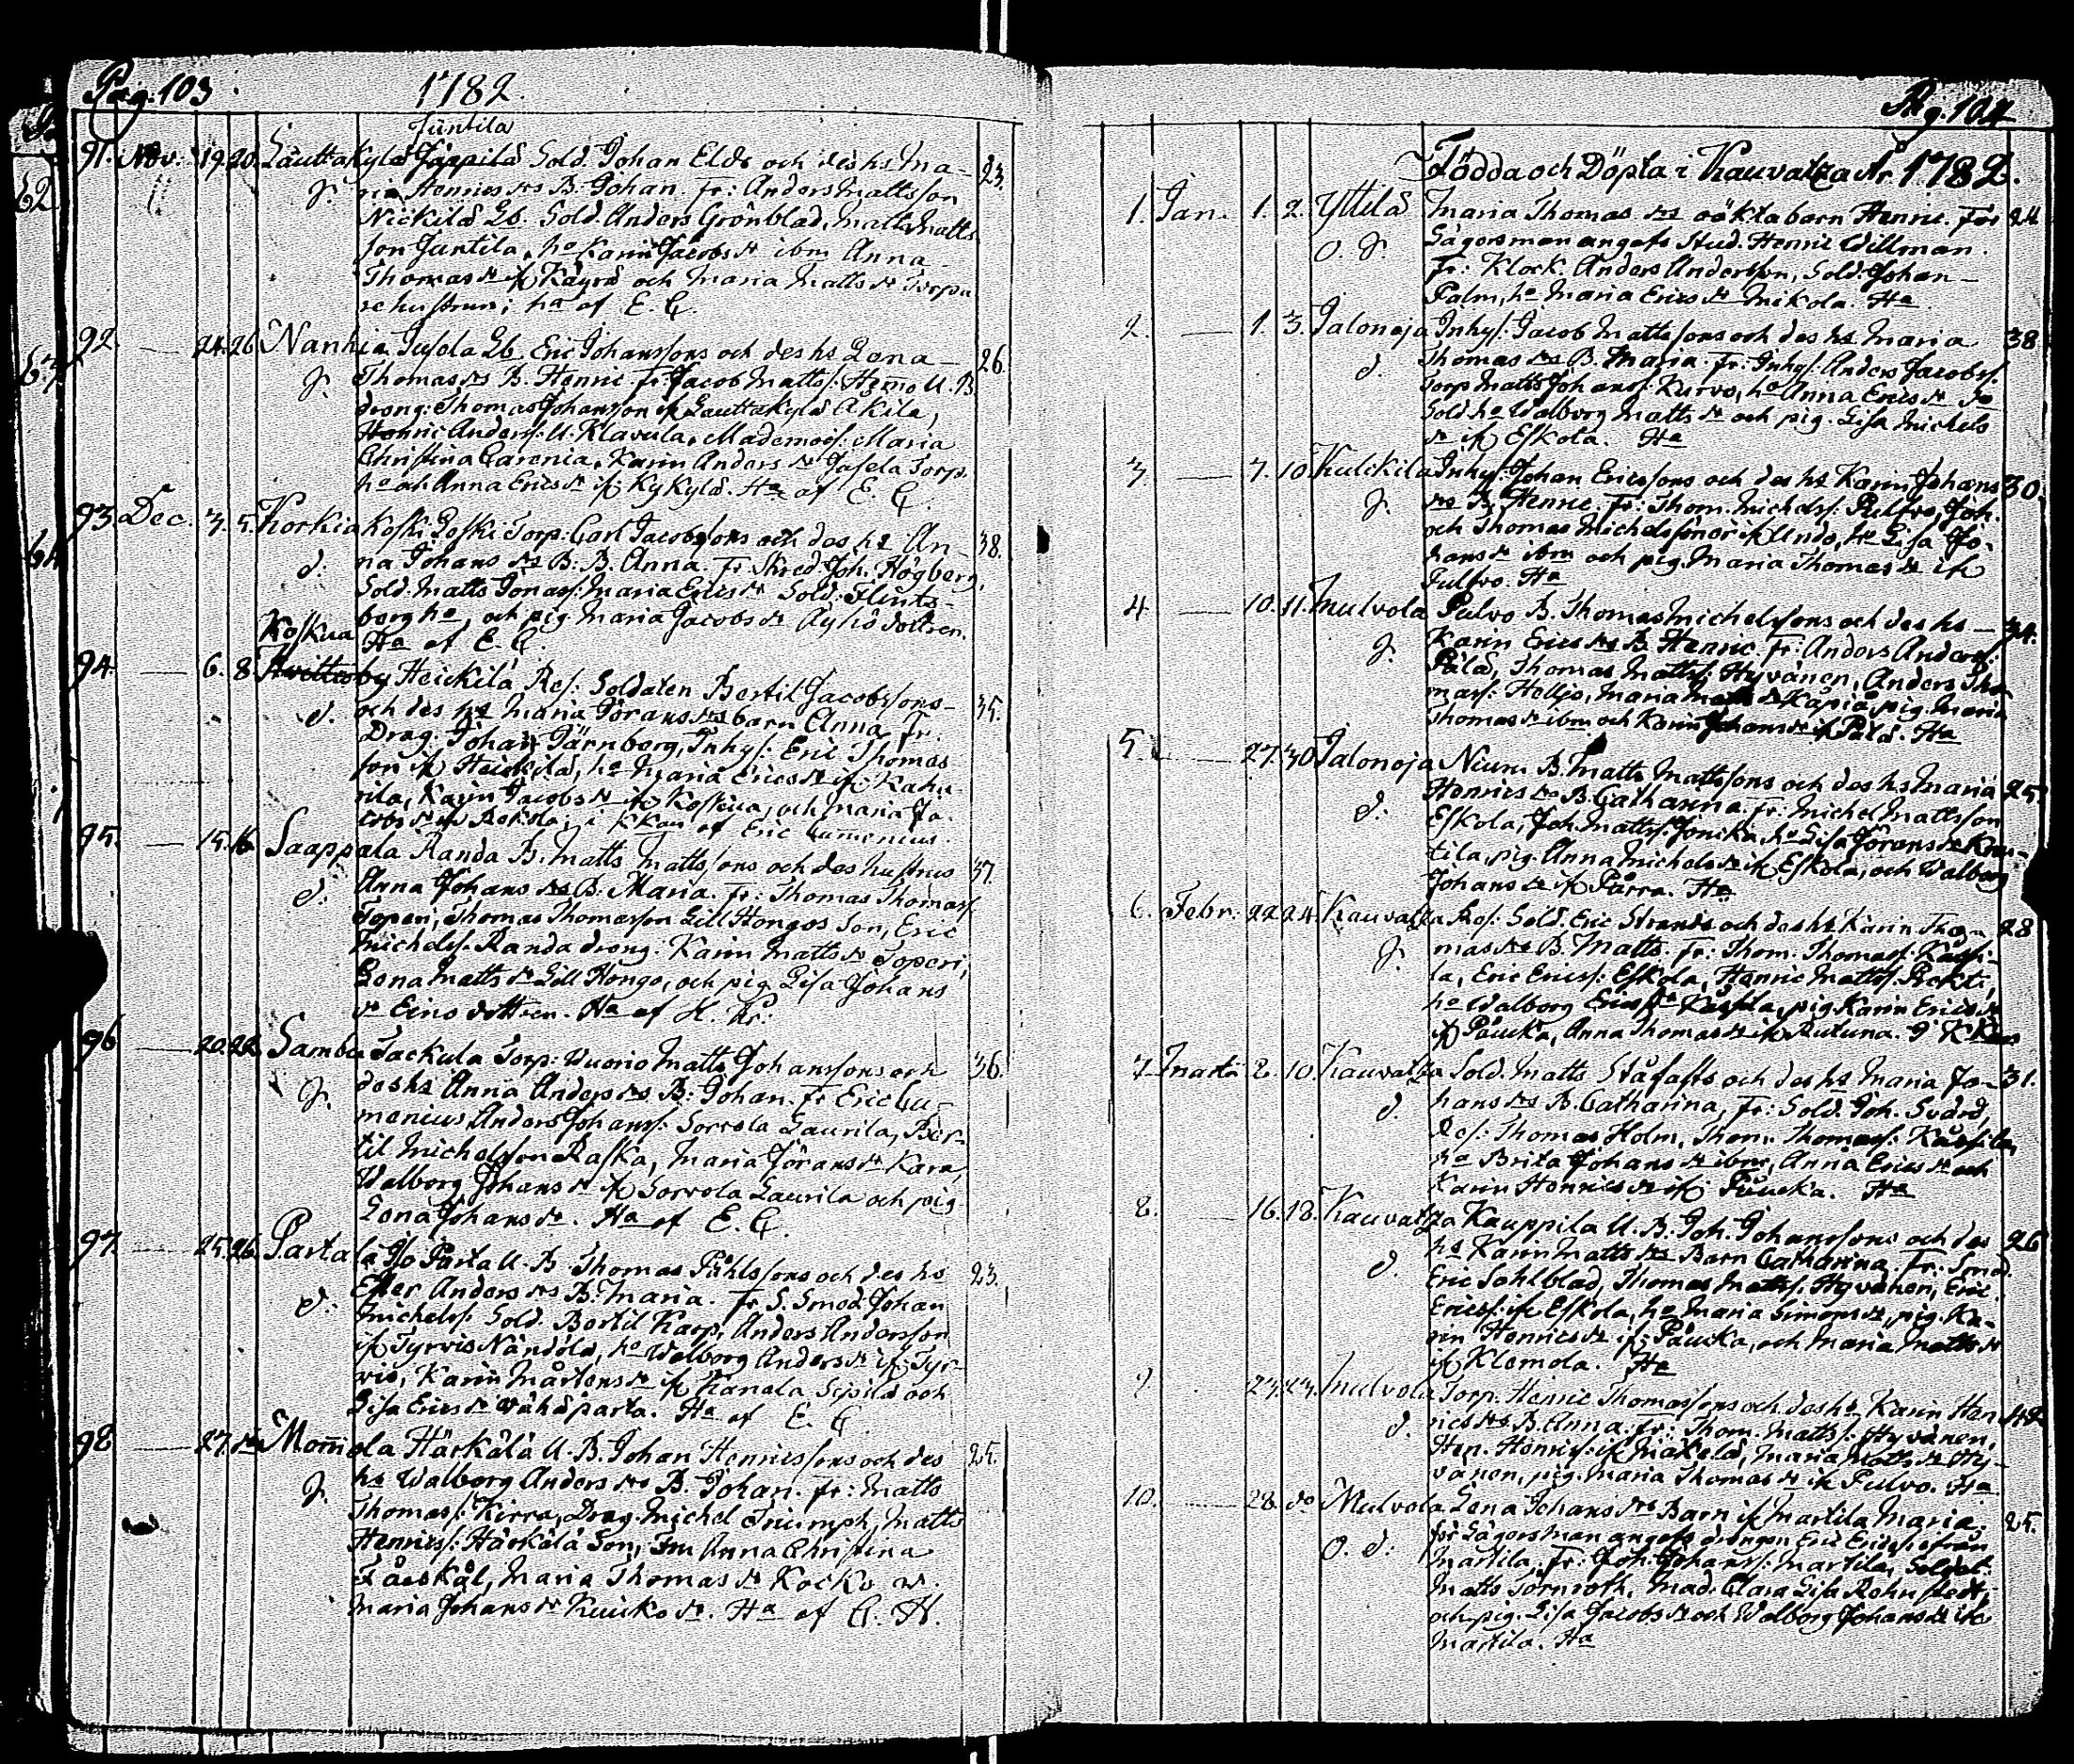 Pag. 103
1782.
Juntila
91. Nov. 19. 20. Lauttakylä Jäppilä Sold. Johan Elds och des hs Ma- 23.
g. ria Henrics drs B. Johan. Fr: Anders Mattsson
Nickilä Lb. Sold. Anders Grönblad, Matts Matts
son Juntila, ho Karin Jacobs dr ibm Anna
Thomas dr if. Käyrä och Maria Matts dr Torpa
rehustrun; Ha af E. C.
92. — 24. 26. Nanhia Jusola Lb. Eric Johanssons och des hs Lena 26.
g. Thomas drs B. Henric Fr: Jacob Matts s. Hemo U. B
dreng: Thomas Johansson if Lauttakylä Akila,
Henric Anders s. U. Klavula, Mademois: Maria
Christina Carenia, Karin Anders dr Jasela Torp.
ho och Anna Erics dr if. Kykylä. Ha af E. C.
93 Dec. 3. 5. Korkiakoski Loski Torp: Carl Jacobssons och des hs An- 38.
d. na Johans drs B. B. Anna. Fr Skred. Joh. Högberg,
Sold. Matts Jonass. Maria Erics dr Sold. Flints-
berg ho, och pig. Maria Jacobs dr Äyhö dottren.
Koskua Ha af E. C.
94. — 6. 8. Hvittisby Heickilä Res. Soldaten Bertil Jacobssons 35.
d. och des hs Maria Görans drs barn Anna. Fr.
Drag. Johan Järnberg, Inhys. Eric Thomas
son if Heickilä, ho Maria Erics dr if Kahu
rila, Karin Jacobs dr if Koskua, och Maria Ja-
cobs dr if Rekola, i KKan af Eric Cumenius.
95. — 15. 16. Saappala Randa B. Matts Mattssons och des hustrus 37.
d. Anna Johans drs B. Maria. Fr: Thomas Thomass.
Toperi, Thomas Thomasson Lill Hongos Son, Eric
Michelss. Randa dreng: Karin Matts dr Toperi,
Lena Matts dr Lill Hongo, och pig. Lisa Johans
dr Eino dottren. Ha af H. Kr.
96 — 20. 22. Sambu Jackula Torp: Wuorio Matts Johanssons och 36.
g. des hs Anna Anders drs B: Johan. Fr Eric Cu-
menius, Anders Johanss: Sorvola Laurila, Ber-
til Michelsson Raska, Maria Görans dr Kara,
Walborg Johans dr if Sorvola Laurila och pig
Lena Johans dr. Ha af E. C.
97. — 25. 26. Partala Iso Parta U. B. Thomas Påhlssons och des hs 23.
d. Ester Anders drs B: Maria. Fr S. Smed. Johan
Michelss. Sold. Bertil Karp, Anders Andersson
if Tyrvis Nändölä, ho Walborg Anders dr if. Tyr-
vis, Karin Mårtens dr if Kanala Sipilä och
Lisa Erics dr Vähäparta. Ha af E. C.
98 — 27. do Mommola Härkälä U. B. Johan Henricssons och des 25.
g. hs Walborg Anders drs B. Johan. Fr: Matts
Thomass: Kirra, Drag. Michel Triumph, Matts
Henricss: Härkälä Son, Fru Anna Christina
Fåeskål, Maria Thomas dr Kocko w.
Maria Johans dr Kuicko dr. Ha af A. H.
Pag. 104
Födda och Döpta i Kauvatza År 1782.
1. Jan. 1. 2. Yttilä Maria Thomas drs oäkta barn Henric. För 24
o. g. Lägersman angafs Stud. Henric Willman.
Fr: Klock. Anders Andersson, Sold. Johan
Palm, ho Maria Erics dr Mikola. Ha
2. — 1. 3. Jalonoja Inhys: Jacob Mattssons och des hs Maria 38
d. Thomas drs B. Maria. Fr: Inhys: Anders Jacobss.
Torp Matts Johanss: Kurvo, ho Anna Erics dr do
Sold ho Walborg Matts dr och pig. Lisa Michels
dr if Eskola. Ha
3. — 7. 10. Kulckila Inhys: Johan Ericssons och des hs Karin Johans 30.
g. drs B. Henric. Fr: Thom. Michelss: Pulfvo, Joh.
och Thomas Michelssöner if Undo, ho Lisa Jo-
hans dr ibm och pig. Maria Thomas dr if
Pulfvo. Ha
4. — 10. 11. Mulvola Pulvo B. Thomas Michelssons och des hs 34.
g. Karin Erics drs B. Henric. Fr: Anders Anderss:
Pälä, Thomas Mattss: Hyvänen, Anders Tho-
mass: Heljo, Maria Matts dr Kapia, pig. Maria
Thomas dr ibm och Karin Johans dr if Pälä. Ha
5. — 27. 30. Jalonoja Niemi B. Matts Mattssons och des hs Maria 25.
d. Henrics drs B. Catharina. Fr: Michel Mattsson
Eskola, Joh. Mattss: Jonicka, ho Lisa Görans dr
tila, pig. Anna Michels dr if Eskola, och Walborg
Johans dr if Pärra. Ha
6. Febr: 22. 24. Kauvatza Res: Sold. Eric Strands och des hs Karin Tho- 28
g. mas drs B. Matts. Fr: Thom. Thomass: Kaupi-
la, Eric Ericss: Eskola, Henric Mattss:
ho Walborg Erics dr pig Karin Erics dr
if Påucka, Anna Thomas dr if Rutuna. I KKan
7. Martii 8. 10. Kauvatza Sold. Matts Ståfasts och des hs Maria Jo- 31.
d. hans drs B. Catharina, Fr: Sold. Joh. Svärd,
Res: Thomas Holm, Thom. Thomass:
ho Brita Johans dr ibm, Anna Erics dr och
Karin Henrics dr if. Påucka. Ha
8. — 16. 18. Kauvatza Kauppila U. B. Joh. Johanssons och des 26
d. hs Karin Matts drs Barn Catharina. Fr: Smed.
Eric Sahlblad, Thomas Mattss. Hyvänen, Eric
Ericss: if Eskola, ho Maria Simons dr, pig. Ka-
rin Henrics dr if: Påucka, och Maria Matts dr
if Klemola. Ha
9. Mulvola Torp. Henric Thomassons och des hs Karin Hen- 42
d. rics drs B. Anna. Fr: Thom. Mattss: Hyvänen,
Hen. Henricss: if Mäkelä, Maria Matts dr Hy-
vänen, pig. Maria Thomas dr if Pulvo. Ha
10. — 28. do Mulvola Lena Johans drs Barn if Martila Maria. 25.
o. d. för Lägersman angafs drengen Eric Ericss: ifrån
Martila. Fr: Joh. Johanss: Martila, Soldat.
Matts Törnroth, Mad. Clara Lisa Rehnstedt,
och pig. Lisa Jacobs dr och Walborg Johans dr if
Martila. Ha